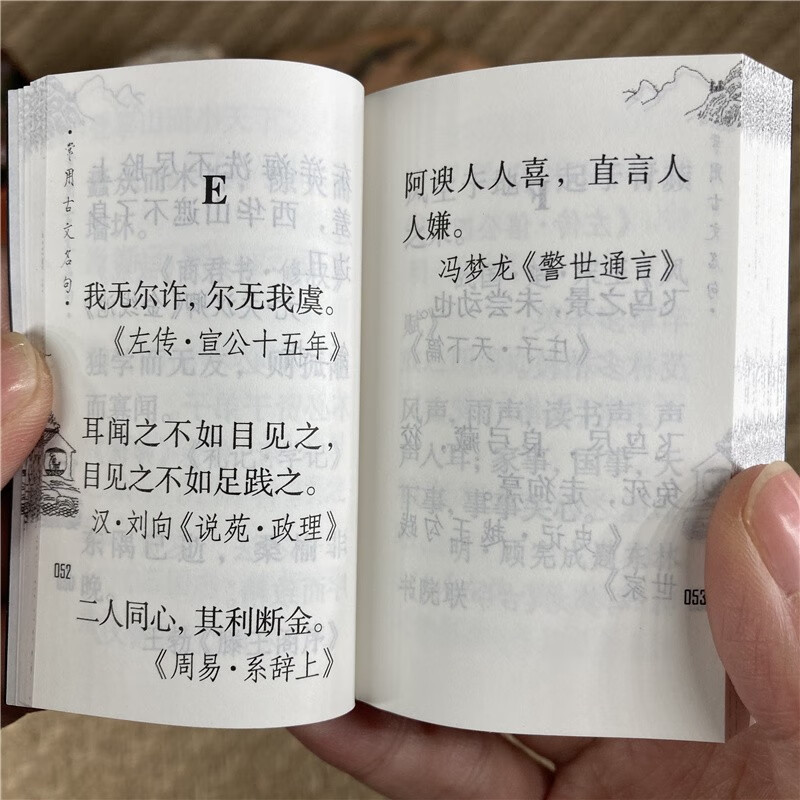 ·常用古文名句·
E
我无尔诈，尔无我虞。
《左传·宣公十五年》
耳闻之不如目见之，
目见之不如足践之。
汉·刘向《说苑·政理》
二人同心，其利断金。
《周易·系辞上》
052
常用古文名句·
阿谀人人喜，直言人
人嫌。
冯梦龙《警世通言》
053